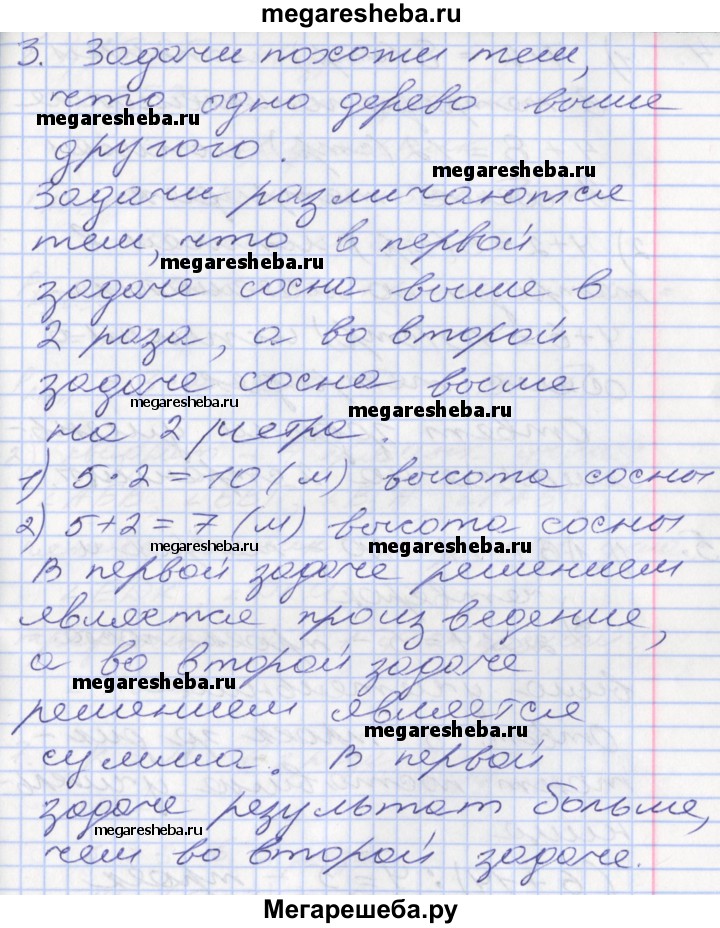 megaresheba.ru
3. Задачи похожи тем,
что одно дерево выше
megaresheba.ru
другого.
megaresheba.ru
Задачи различаются
тем, что в первой
megaresheba.ru
задаче сосна выше в
2 раза, а во второй
задаче сосна выше
megaresheba.ru
megaresheba.ru
на 2 метра.
1) 5·2=10 (м) высота сосны
2) 5+2=7 (м) высота сосны
megaresheba.ru
megaresheba.ru
В первой задаче решением
является произведение,
а во второй задаче
megaresheba.ru
решением является
megaresheba.ru
сумма. В первой
задаче результат больше,
megaresheba.ru
чем во второй задаче.
Мегарешеба.ру